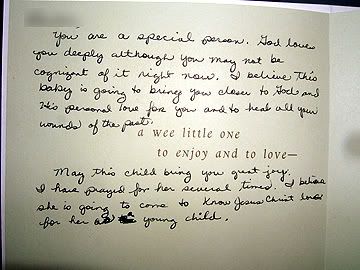 You are a special person. God loves
you deeply although you may not be
cognizant of it right now. I believe this
baby is going to bring you closer to God and
His personal love for you and to heal all your
wounds of the past.
a wee little one
to enjoy and to love—
May this child bring you great joy.
I have prayed for her several times. I believe
she is going to come to know Jesus Christ
for her young child.